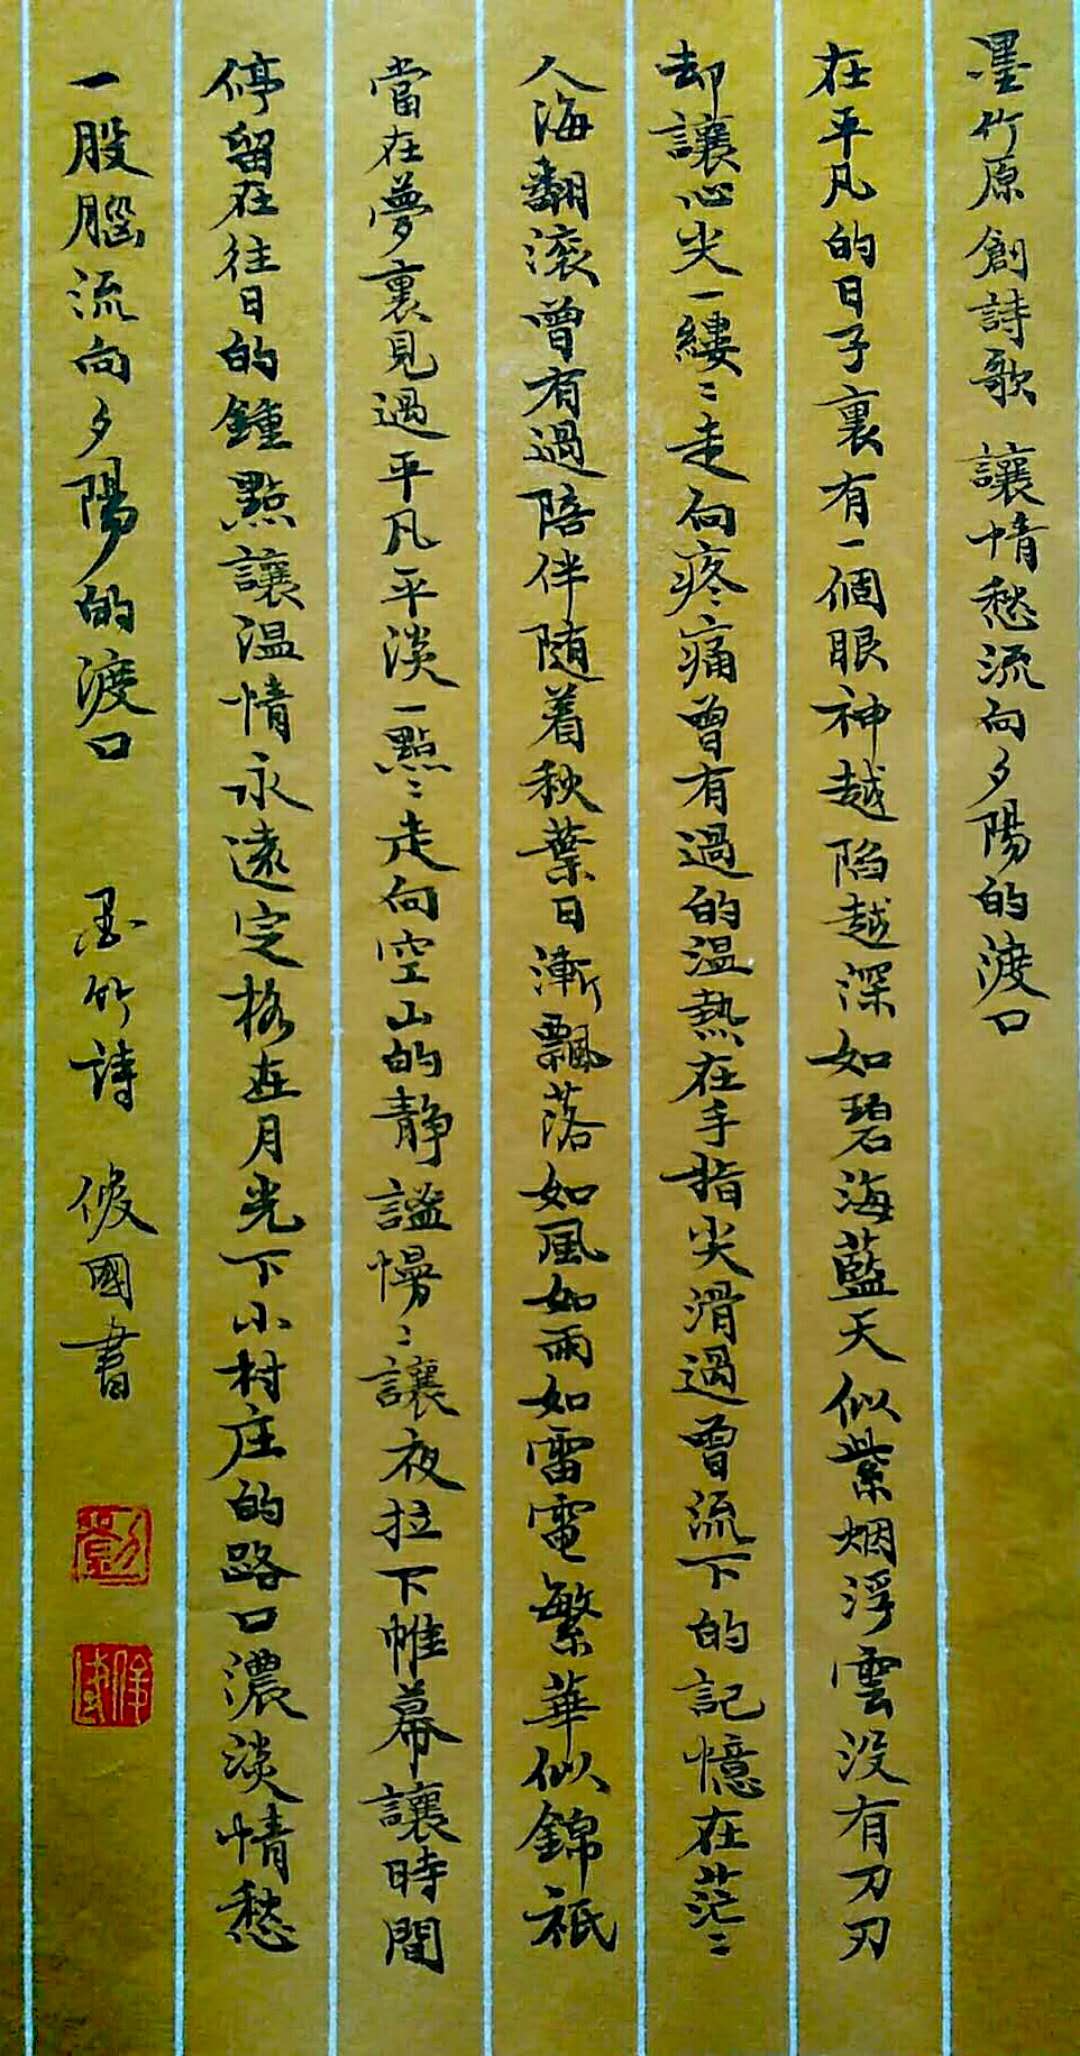 墨竹原創詩歌 讓情愁流向夕陽的渡口
在平凡的日子裏有一個眼神越陷越深如碧海藍天似紫烟浮雲没有刀刃
却讓心尖一縷〻走向疼痛曾有過的温熱在手指尖滑過曾流下的記憶在茫〻
人海翻滚曾有過陪伴随着秋葉日漸飄落如風如雨如雷電繁華似錦祇
當在夢裏見過平凡平淡一點〻走向空山的静謐慢〻讓夜拉下帷幕讓時間
停留在往日的鐘點讓温情永遠定格在月光下小村庄的路口濃淡情愁
一股腦流向夕陽的渡口 墨竹詩 俊國書